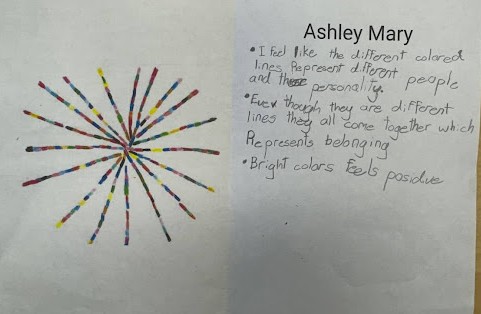 Ashley Mary
• I Feel like the different colored
lines Represent different people
and personality.
• Even though they are different
lines they all come together which
Represents belonging
• Bright colors Feels posidive